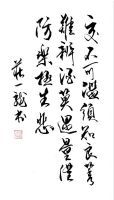 交不可濫須知良莠
難辨酒莫過量謹
防樂極生悲